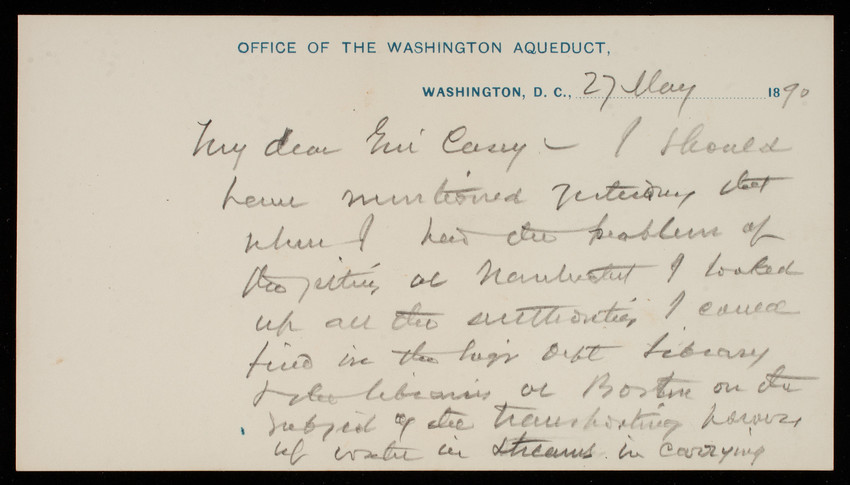 OFFICE OF THE WASHINGTON AQUEDUCT,
WASHINGTON, D. C., 27 May 1890
My dear Gen Casey - I should
have mentioned yesterday that
when I had the problem of
the jetties at Nantucket I looked
up all the authorities I could
find in the Eng'r Dept Library
& the libraries at Boston on the
subject of the transporting power
of water in streams in carrying